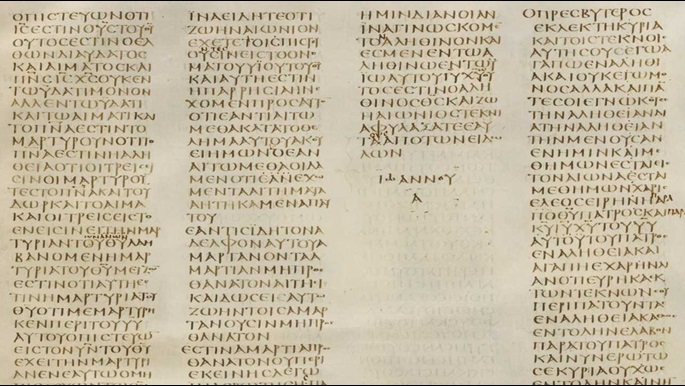 ΟΠΙϹΤΕΥΩΝΟΤΙ
ΙϹΕϹΤΙΝΟΥϹΤΟΥΘΥ
ΟΥΤΟϹΕϹΤΙΝΟΕΛ
ΘΩΝΔΙΑΥΔΑΤΟϹ
ΚΑΙΑΙΜΑΤΟϹΚΑΙ
ΠΝϹΙϹΧϹΟΥΚΕΝ
ΤΩΥΔΑΤΙΜΟΝΟΝ
ΑΛΛΕΝΤΩΥΔΑΤΙ
ΚΑΙΤΩΑΙΜΑΤΙΚΑΙ
ΤΟΠΝΑΕϹΤΙΝΤΟ
ΜΑΡΤΥΡΟΥΝΟΤΙΤΟ
ΠΝΑΕϹΤΙΝΗΑΛΗ
ΘΕΙΑΟΤΙΟΙΤΡΕΙϹΕΙ
ϹΙΝΟΙΜΑΡΤΥΡΟΥΝ
ΤΕϹΤΟΠΝΑΚΑΙΤΟΥ
ΔΩΡΚΑΙΤΟΑΙΜΑ
ΚΑΙΟΙΤΡΕΙϹΕΙϹΤΟ
ΕΝΕΙϹΙΝΕΙΤΗΝΜΑΡ
ΤΥΡΙΑΝΤΟΥΘΥΛΑΜ
ΒΑΝΟΜΕΝΗΜΑΡ
ΤΥΡΙΑΤΟΥΘΥΜΕΙΖΩ
ΕϹΤΙΝΟΤΙΑΥΤΗΕϹ
ΤΙΝΗΜΑΡΤΥΡΙΑΤΟΥ
ΘΥΟΤΙΜΕΜΑΡΤΥΡΗ
ΚΕΝΠΕΡΙΤΟΥΥΥ
ΑΥΤΟΥΟΠΙϹΤΕΥΩ
ΕΙϹΤΟΝΥΝΤΟΥΘΥ
ΕΧΕΙΤΗΝΜΑΡΤΥΡΙ
ΑΝΕΝΕΑΥΤΩΟΜΗ
ΙΝΑΕΙΔΗΤΕΟΤΙ
ΖΩΗΝΑΙΩΝΙΟΝ
ΕΧΕΤΕΤΟΙϹΠΙϹΤΕΥ
ΟΥϹΙΝΕΙϹΤΟΟΝΟ
ΜΑΤΟΥΥΙΟΥΤΟΥΘΥ
ΚΑΙΑΥΤΗΕϹΤΙΝ
ΗΠΑΡΡΗϹΙΑΗΝΕ
ΧΟΜΕΝΠΡΟϹΑΥΤΟ
ΟΤΙΕΑΝΤΙΑΙΤΩ
ΜΕΘΑΚΑΤΑΤΟΘΕ
ΛΗΜΑΑΥΤΟΥΑΚΟΥ
ΕΙΗΜΩΝΟΕΑΝ
ΑΙΤΩΜΕΘΑΟΙΔΑ
ΜΕΝΟΤΙΕΑΝΕΧΟ
ΜΕΝΤΑΑΙΤΗΜΑΤΑ
ΑΗΤΗΚΑΜΕΝΑΠΑΥ
ΤΟΥ
ΕΑΝΤΙϹΙΔΗΤΟΝΑ
ΔΕΛΦΟΝΑΥΤΟΥΑ
ΜΑΡΤΑΝΟΝΤΑΑ
ΜΑΡΤΙΑΝΜΗΠΡΟϹ
ΘΑΝΑΤΟΝΑΙΤΗϹΙ
ΚΑΙΔΩϹΕΙΑΥΤΩ
ΖΩΗΝΤΟΙϹΑΜΑΡ
ΤΑΝΟΥϹΙΝΜΗΠΡΟϹ
ΘΑΝΑΤΟΝ
ΕϹΤΙΝΑΜΑΡΤΙΑΠΡΟϹ
ΘΑΝΑΤΟΝΟΥΠΕΡΙ
ΕΚΕΙΝΗϹΛΕΓΩ
ΗΜΙΝΔΙΑΝΟΙΑΝ
ΙΝΑΓΙΝΩϹΚΟΜΕ
ΤΟΑΛΗΘΙΝΟΝΚΑΙ
ΕϹΜΕΝΕΝΤΩΑ
ΛΗΘΙΝΩΕΝΤΩΥΙ
ΙΩΑΥΤΟΥΙΥΧΥΟΥ
ΤΟϹΕϹΤΙΝΟΑΛΗ
ΘΙΝΟϹΘϹΚΑΙΖΩ
ΗΑΙΩΝΙΟϹΤΕΚΝΙ
ΑΦΥΛΑΞΑΤΕΕΑΥ
ΤΑΑΠΟΤΩΝΕΙΔΩ
ΛΩΝ
ΙΩΑΝΝΟΥ
Α
ΟΠΡΕϹΒΥΤΕΡΟϹ
ΕΚΛΕΚΤΗΚΥΡΙΑ
ΚΑΙΤΟΙϹΤΕΚΝΟΙϹ
ΑΥΤΗϹΟΥϹΕΓΩΑ
ΓΑΠΩΕΝΑΛΗΘΙ
ΑΚΑΙΟΥΚΕΓΩΜΟ
ΝΟϹΑΛΛΑΚΑΙΠΑΝ
ΤΕϹΟΙΕΓΝΩΚΟΤΕϹ
ΤΗΝΑΛΗΘΕΙΑΝΔΙ
ΑΤΗΝΑΛΗΘΕΙΑΝ
ΤΗΝΜΕΝΟΥϹΑΝ
ΕΝΗΜΙΝΚΑΙΜΕ
ΘΗΜΩΝΕϹΤΑΙΕΙϹ
ΤΟΝΑΙΩΝΑΕϹΤΑΙ
ΜΕΘΗΜΩΝΧΑΡΙϹ
ΕΛΕΟϹΕΙΡΗΝΗΠΑΡΑ
ΘΥΠΑΤΡΟϹΚΑΙΠΑΡΑ
ΚΥΙΥΧΥΤΟΥΥΥ
ΑΥΤΟΥΤΟΥΠΑΤΡΟϹ
ΕΝΑΛΗΘΕΙΑΚΑΙ
ΑΓΑΠΗΕΧΑΡΗΝΛΙ
ΑΝΟΤΙΕΥΡΗΚΑΕΚ
ΤΩΝΤΕΚΝΩΝϹΟΥ
ΠΕΡΙΠΑΤΟΥΝΤΑϹ
ΕΝΑΛΗΘΕΙΑΚΑΘΩϹ
ΕΝΤΟΛΗΝΕΛΑΒΟΝ
ΠΑΡΑΤΟΥΠΑΤΡΟϹ
ΚΑΙΝΥΝΕΡΩΤΩϹΕ
ΚΥΡΙΑΟΥΧΩϹ
ΕΝΤΟΛΗΝΚΑΙΝΗΝ